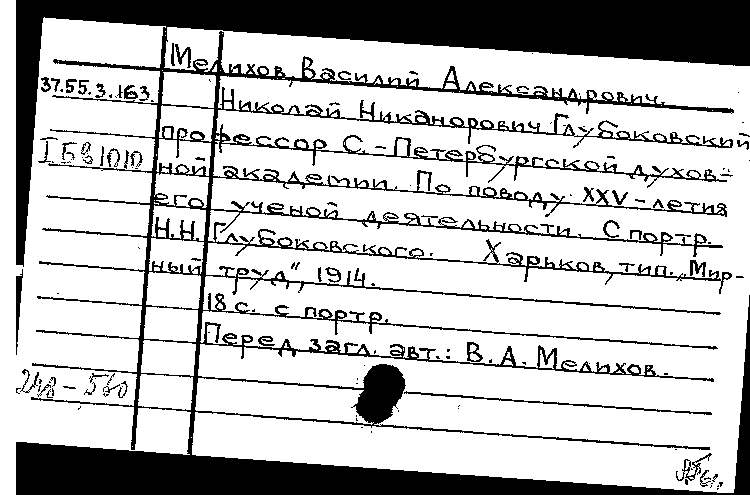 Мелихов, Василий Александрович.
37.55.3.163.
Николай Никанорович Глубоковский
профессор С.-Петербургской духов=
IБ81010
ной академии. По поводу XXV-летия
его ученой деятельности. С портр.
Н.Н. Глубоковского. Харьков, тип. „Мир-
ный труд", 1914.
18 с. с портр.
Перед загл. авт.: В. А. Мелихов.
248-560